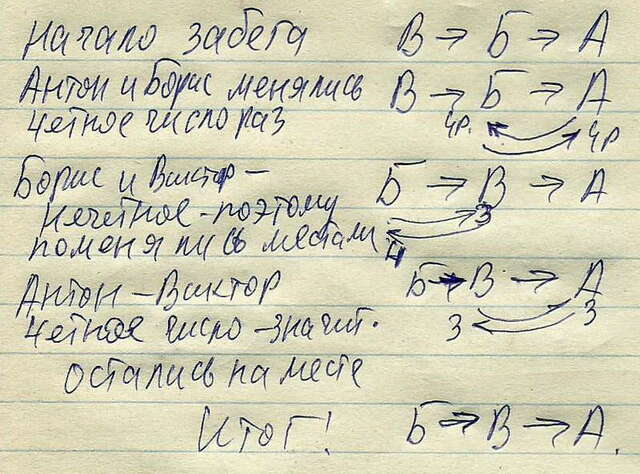 Начало забега В → Б → А
Антон и Борис менялись В → Б → А
четное число раз 4р. 4р
Борис и Виктор – Б → В → А
нечетное - поэтому 3
поменялись местами 4
Антон – Виктор Б → В → А
четное число - значит. 3 3
остались на месте
Итог! Б → В → А.